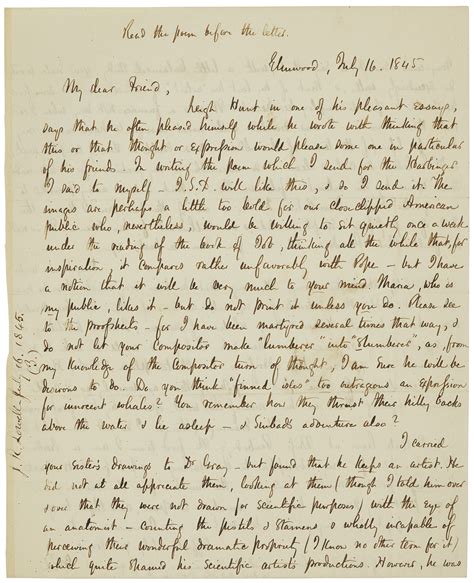 Read the poem before the letter.
Elmwood, July 16. 1845
My dear Friend,
Leigh Hunt in one of his pleasant essays,
says that he often pleased himself while he wrote with thinking that
this or that thought or expression would please some one in particular
of his friends. In writing the poem which I send for the Harbinger
I said to myself – J.S.D. will like this, & so I send it. The
images are perhaps a little too bold for our closeclipped American
public who, nevertheless, would be willing to sit quietly once a week
under the reading of the book of Job, thinking all the while that, for
inspiration, it compares rather unfavorably with Pope – but I have
a notion that it will be very much to your mind. Maria, who is
my public, likes it – but do not print it unless you do. Please see
to the proofsheets – for I have been martyred several times that way, &
do not let your compositor make "lumberer" into "slumberer" as, from
my knowledge of the compositor turn of thought, I am sure he will be
desirous to do. Do you think "finned isles" too outrageous an expression
for innocent whales? You remember how they thrust their hilly backs
above the water & lie asleep – & Sinbad's adventure also?
I carried
your Sister's drawings to Dr Gray – but found that he keeps an artist. He
did not at all appreciate them, looking at them (though I told him over
& over that they were not drawn for scientific purposes) with the eye of
an anatomist – counting the pistils & stamens & wholly incapable of
perceiving their wonderful dramatic propriety (I know no other term for it)
which quite shamed his scientific artist's productions. However, he was
J. R. Lowell July 16. 1845.